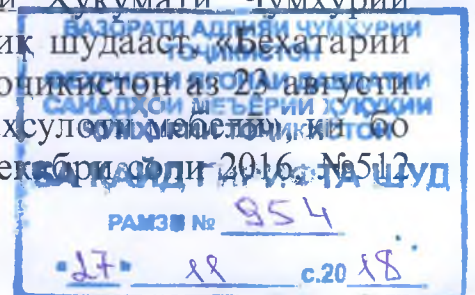 Ҳукумати Ҷумҳурии
шудааст, «Бехатарии
аз 23 августи
маҳсулоти мебелӣ», ки бо
декабри соли 2016, №512
ВАЗОРАТИ АДЛИЯИ ҶУМҲУРИИ
ТОҶИКИСТОН
САНАДҲОИ МЕЪЁРИИ ҲУҚУҚИИ
ҶУМҲУРИИ ТОҶИКИСТОН
БА ҚАЙД ГИРИФТА ШУД
РАМЗИ № 954
"27" 11 с.2018